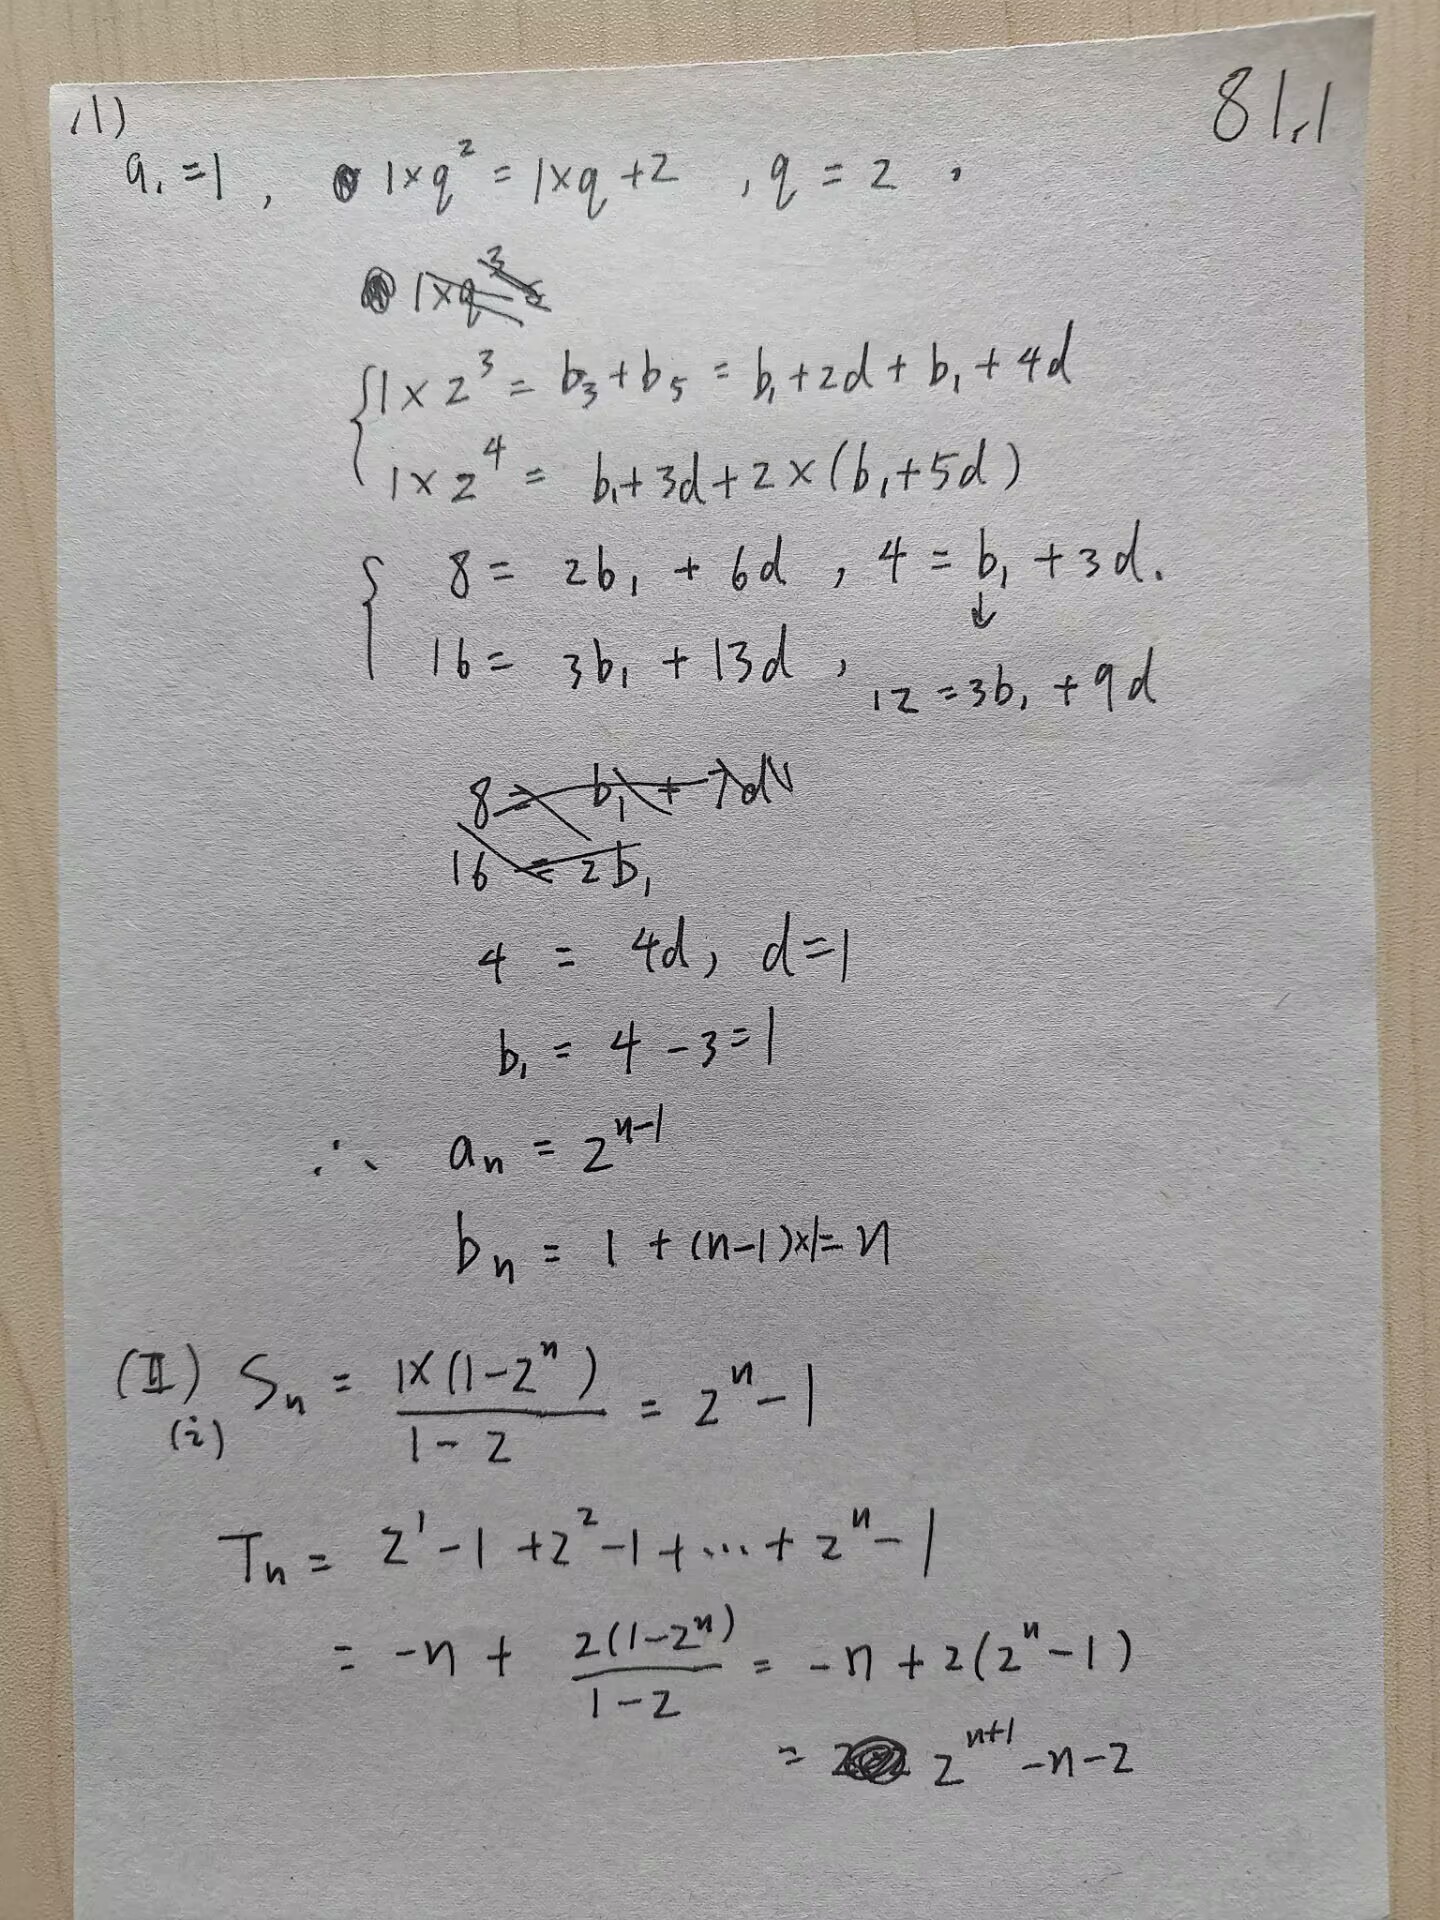 81.1
(1)
a₁=1, 1×q²=1×q+2, q=2.
1×q³=
{1×2³=b₃+b₅=b₁+2d+b₁+4d
1×2⁴=b₁+3d+2×(b₁+5d)
{8=2b₁+6d, 4=b₁+3d.
↓
16=3b₁+13d, 12=3b₁+9d
8=b₁+7d
16=2b₁
4=4d, d=1
b₁=4-3=1
∴ aₙ=2ⁿ⁻¹
bₙ=1+(n-1)×1=n
(Ⅱ) Sₙ=\frac{1×(1-2ⁿ)}{1-2}=2ⁿ-1
(i)
Tₙ=2¹-1+2²-1+…+2ⁿ-1
=-n+\frac{2(1-2ⁿ)}{1-2}=-n+2(2ⁿ-1)
=2ⁿ⁺¹-n-2